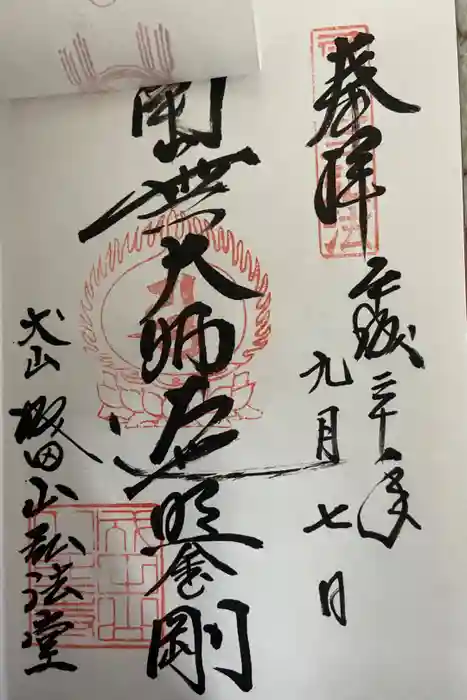 奉拝
平成年
九月七日
南無大師遍照金剛
犬山 田山弘法堂